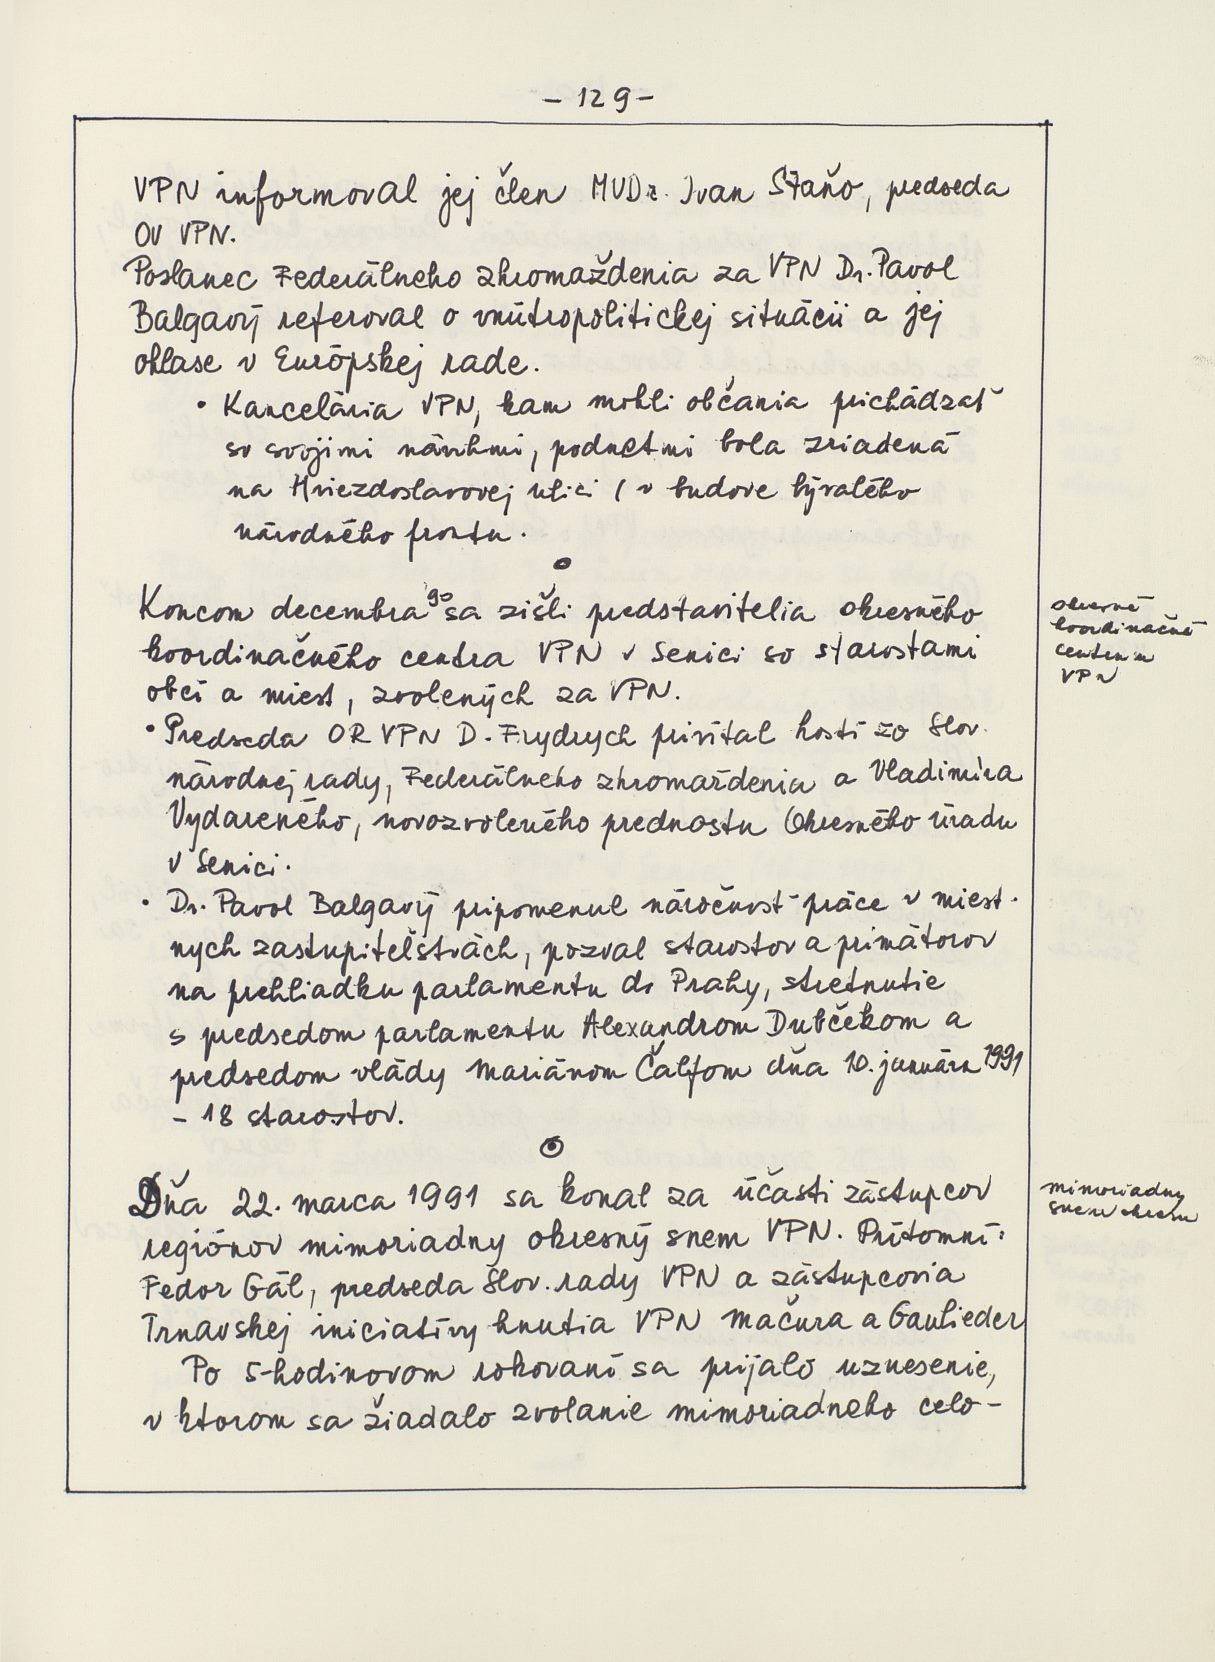 - 129 -
VPN informoval jej člen MVDr. Ivan Staňo, predseda
OV VPN.
Poslanec Federálneho zhromaždenia za VPN Dr. Pavol
Balgavý referoval o vnútropolitickej situácii a jej
ohlase v Európskej rade.
• Kancelária VPN, kam mohli občania prichádzať
so svojimi návrhmi, podnetmi bola zriadená
na Hviezdoslavovej ulici / v budove bývalého
národného frontu.
Koncom decembra 90 sa zišli predstavitelia okresného
koordinačného centra VPN v Senici so starostami
obcí a miest, zvolených za VPN.
okresné
koordinačné
centrum
VPN
• Predseda OR VPN D. Frydrych privítal hostí zo Slov.
národnej rady, Federálneho zhromaždenia a Vladimíra
Vydareného, novozvoleného prednostu Okresného úradu
v Senici.
• Dr. Pavol Balgavý pripomenul náročnosť práce v miest-
nych zastupiteľstvách, pozval starostov a primátorov
na prehliadku parlamentu do Prahy, stretnutie
s predsedom parlamentu Alexandrom Dubčekom a
predsedom vlády Mariánom Čalfom dňa 10. januára 1991
- 18 starostov.
Dňa 22. marca 1991 sa konal za účasti zástupcov
regiónov mimoriadny okresný snem VPN. Prítomní:
Fedor Gál, predseda Slov. rady VPN a zástupcovia
Trnavskej iniciatívy hnutia VPN Mačura a Gaulieder
Po 5-hodinovom rokovaní sa prijalo uznesenie,
v ktorom sa žiadalo zvolanie mimoriadneho celo-
mimoriadny
snem okresu